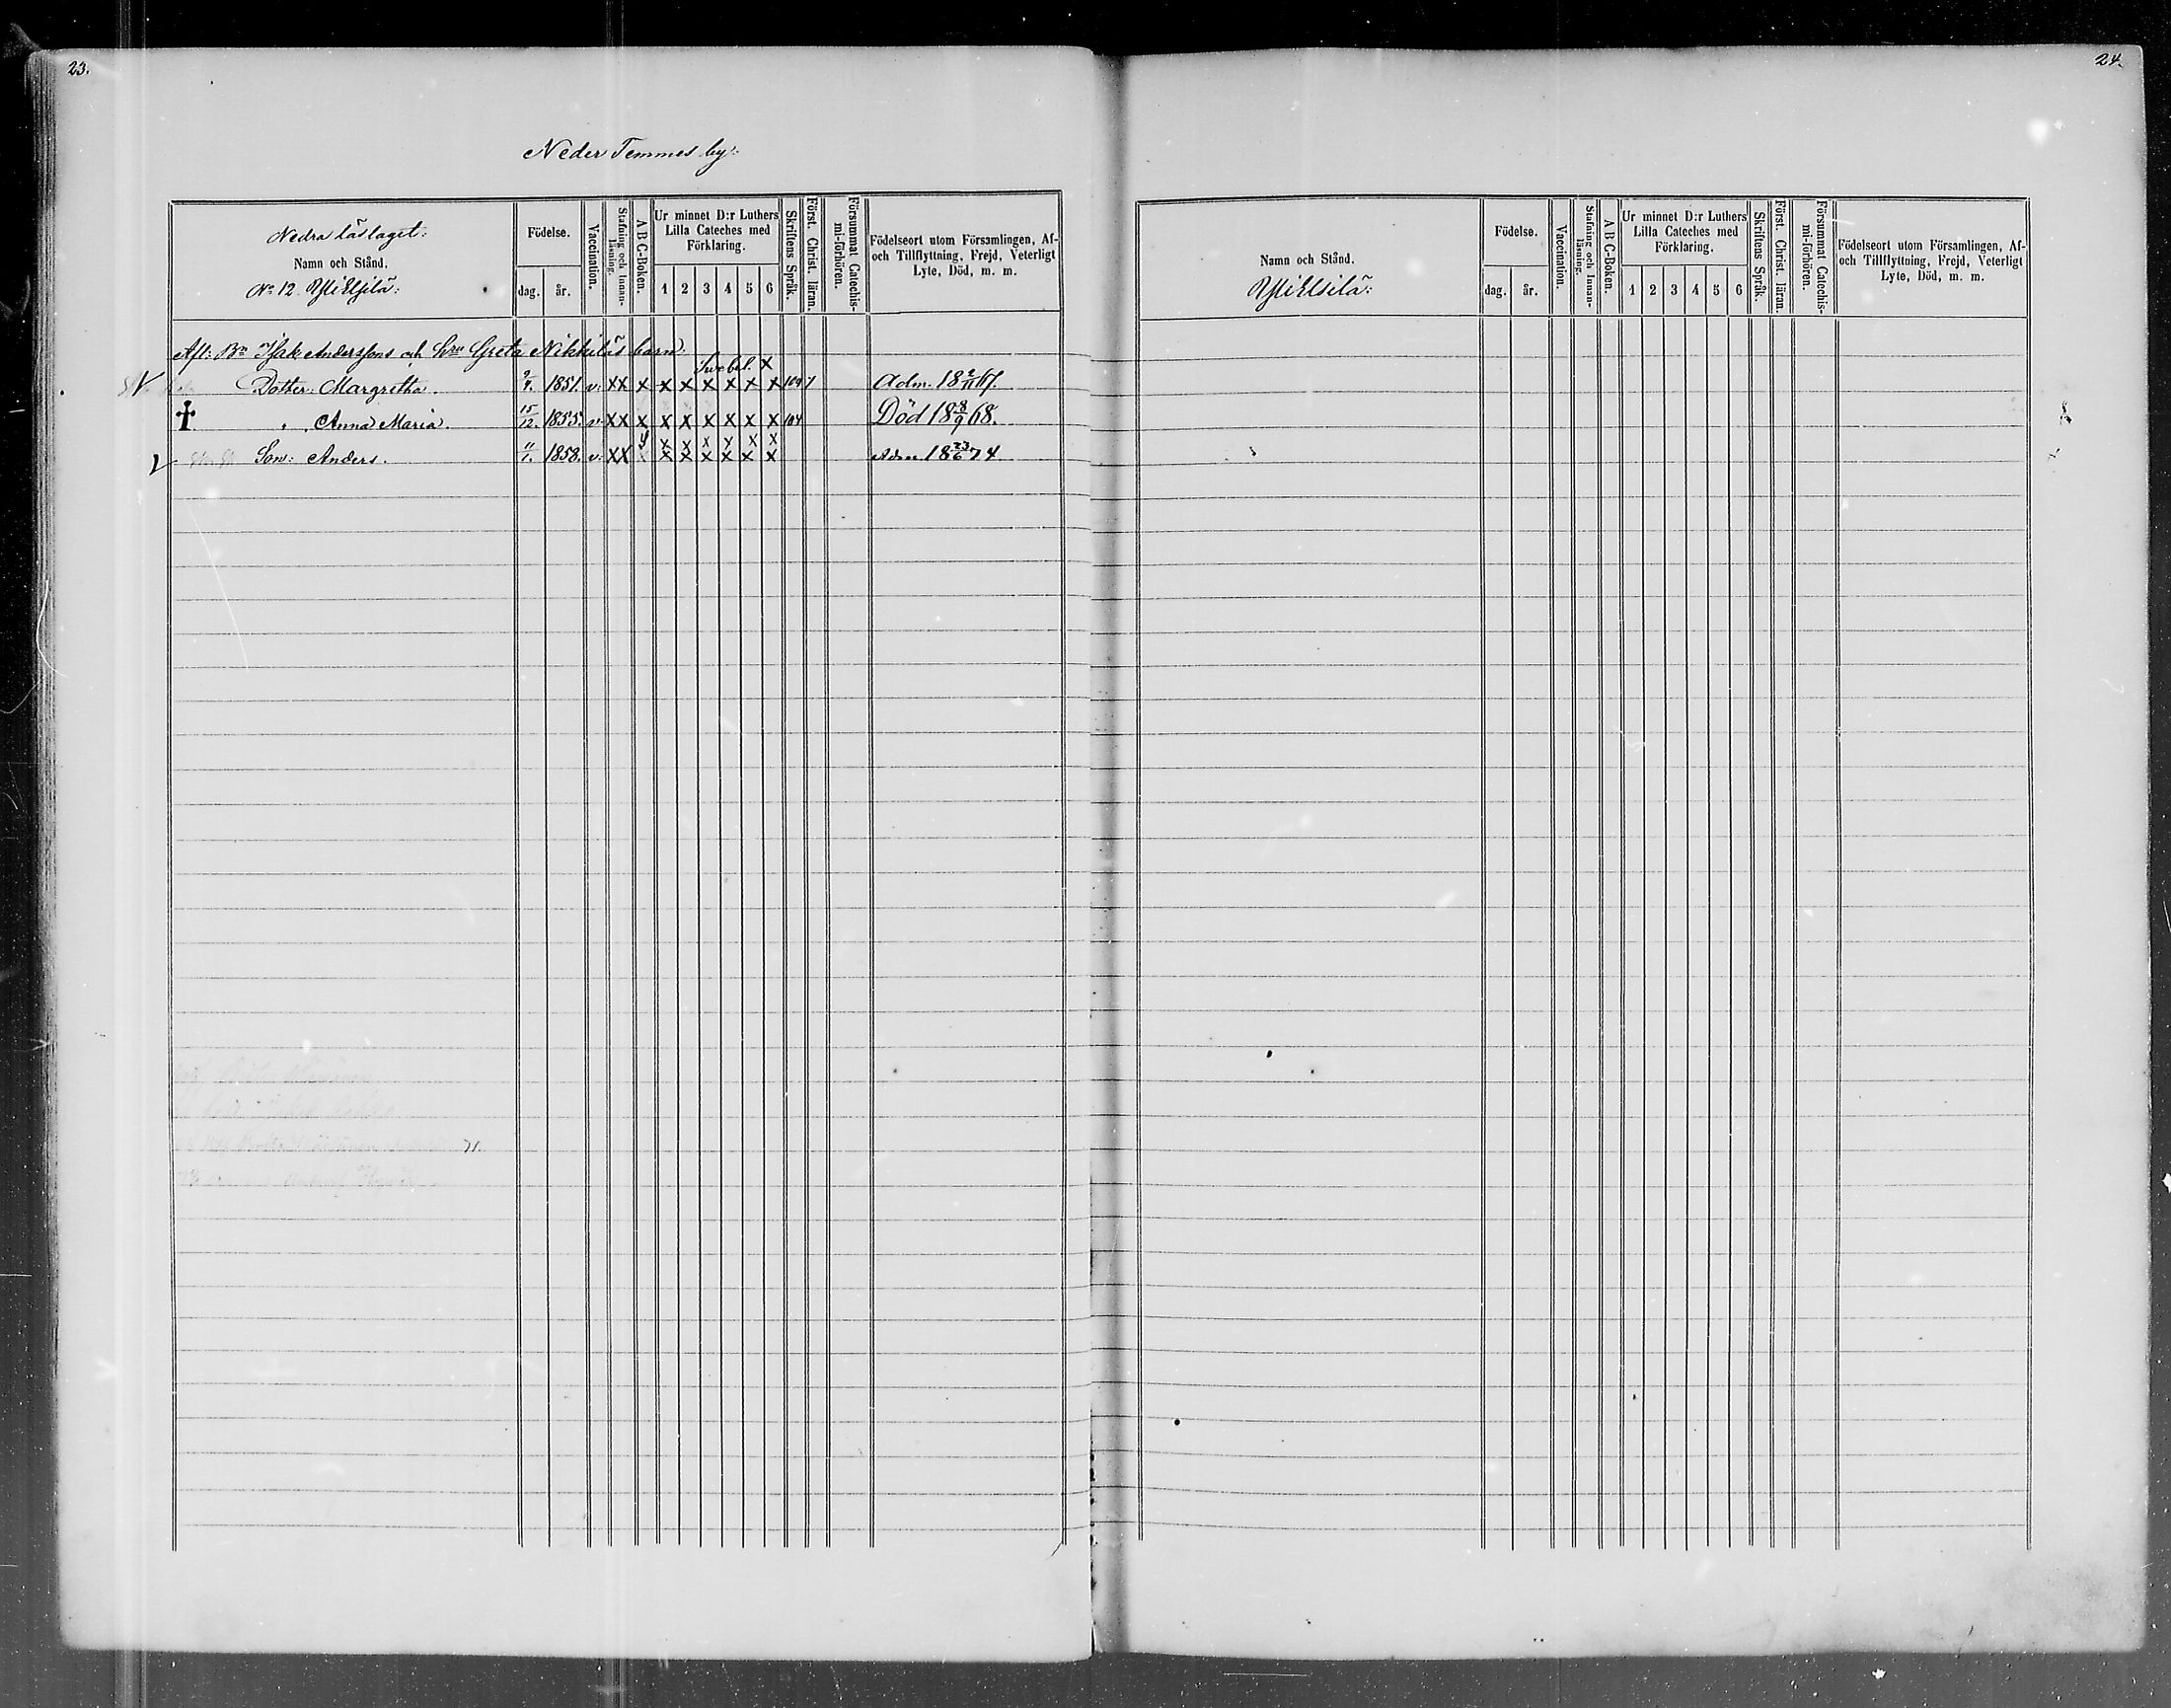 23.
Neder Temmes by:
Nedra läslaget:
Namn och Stånd.
No 12. Yliklsilä:
Födelse.
dag. år.
Vaccination.
Stafning och Innan-läsning.
A B C-Boken.
Ur minnet D:r Luthers Lilla Cateches med Förklaring.
1 2 3 4 5 6
Skriftens Språk.
Först. Christ. läran.
Försummat Catechis-mi-förhören.
Födelseort utom Församlingen, Af- och Tillflyttning, Frejd, Veterligt Lyte, Död, m. m.
Afl: Bn Isak Anderssons och hru Greta Nikkiläs barn
Dotter: Margretha. 9/4. 1851. v. x x x x x x x x x Adm. 18 2/11 67.
„ Anna Maria. 15/12. 1855. v. x x x x x x x x x 104 Död 18 8/9 68.
Son: Anders. 11/1. 1858. v. x x x x x x x x Adm 18 23/6 74
71.
24.
Namn och Stånd.
Yliklsilä:
Födelse.
dag. år.
Vaccination.
Stafning och Innan-läsning.
A B C-Boken.
Ur minnet D:r Luthers Lilla Cateches med Förklaring.
1 2 3 4 5 6
Skriftens Språk.
Först. Christ. läran.
Försummat Catechis-mi-förhören.
Födelseort utom Församlingen, Af- och Tillflyttning, Frejd, Veterligt Lyte, Död, m. m.